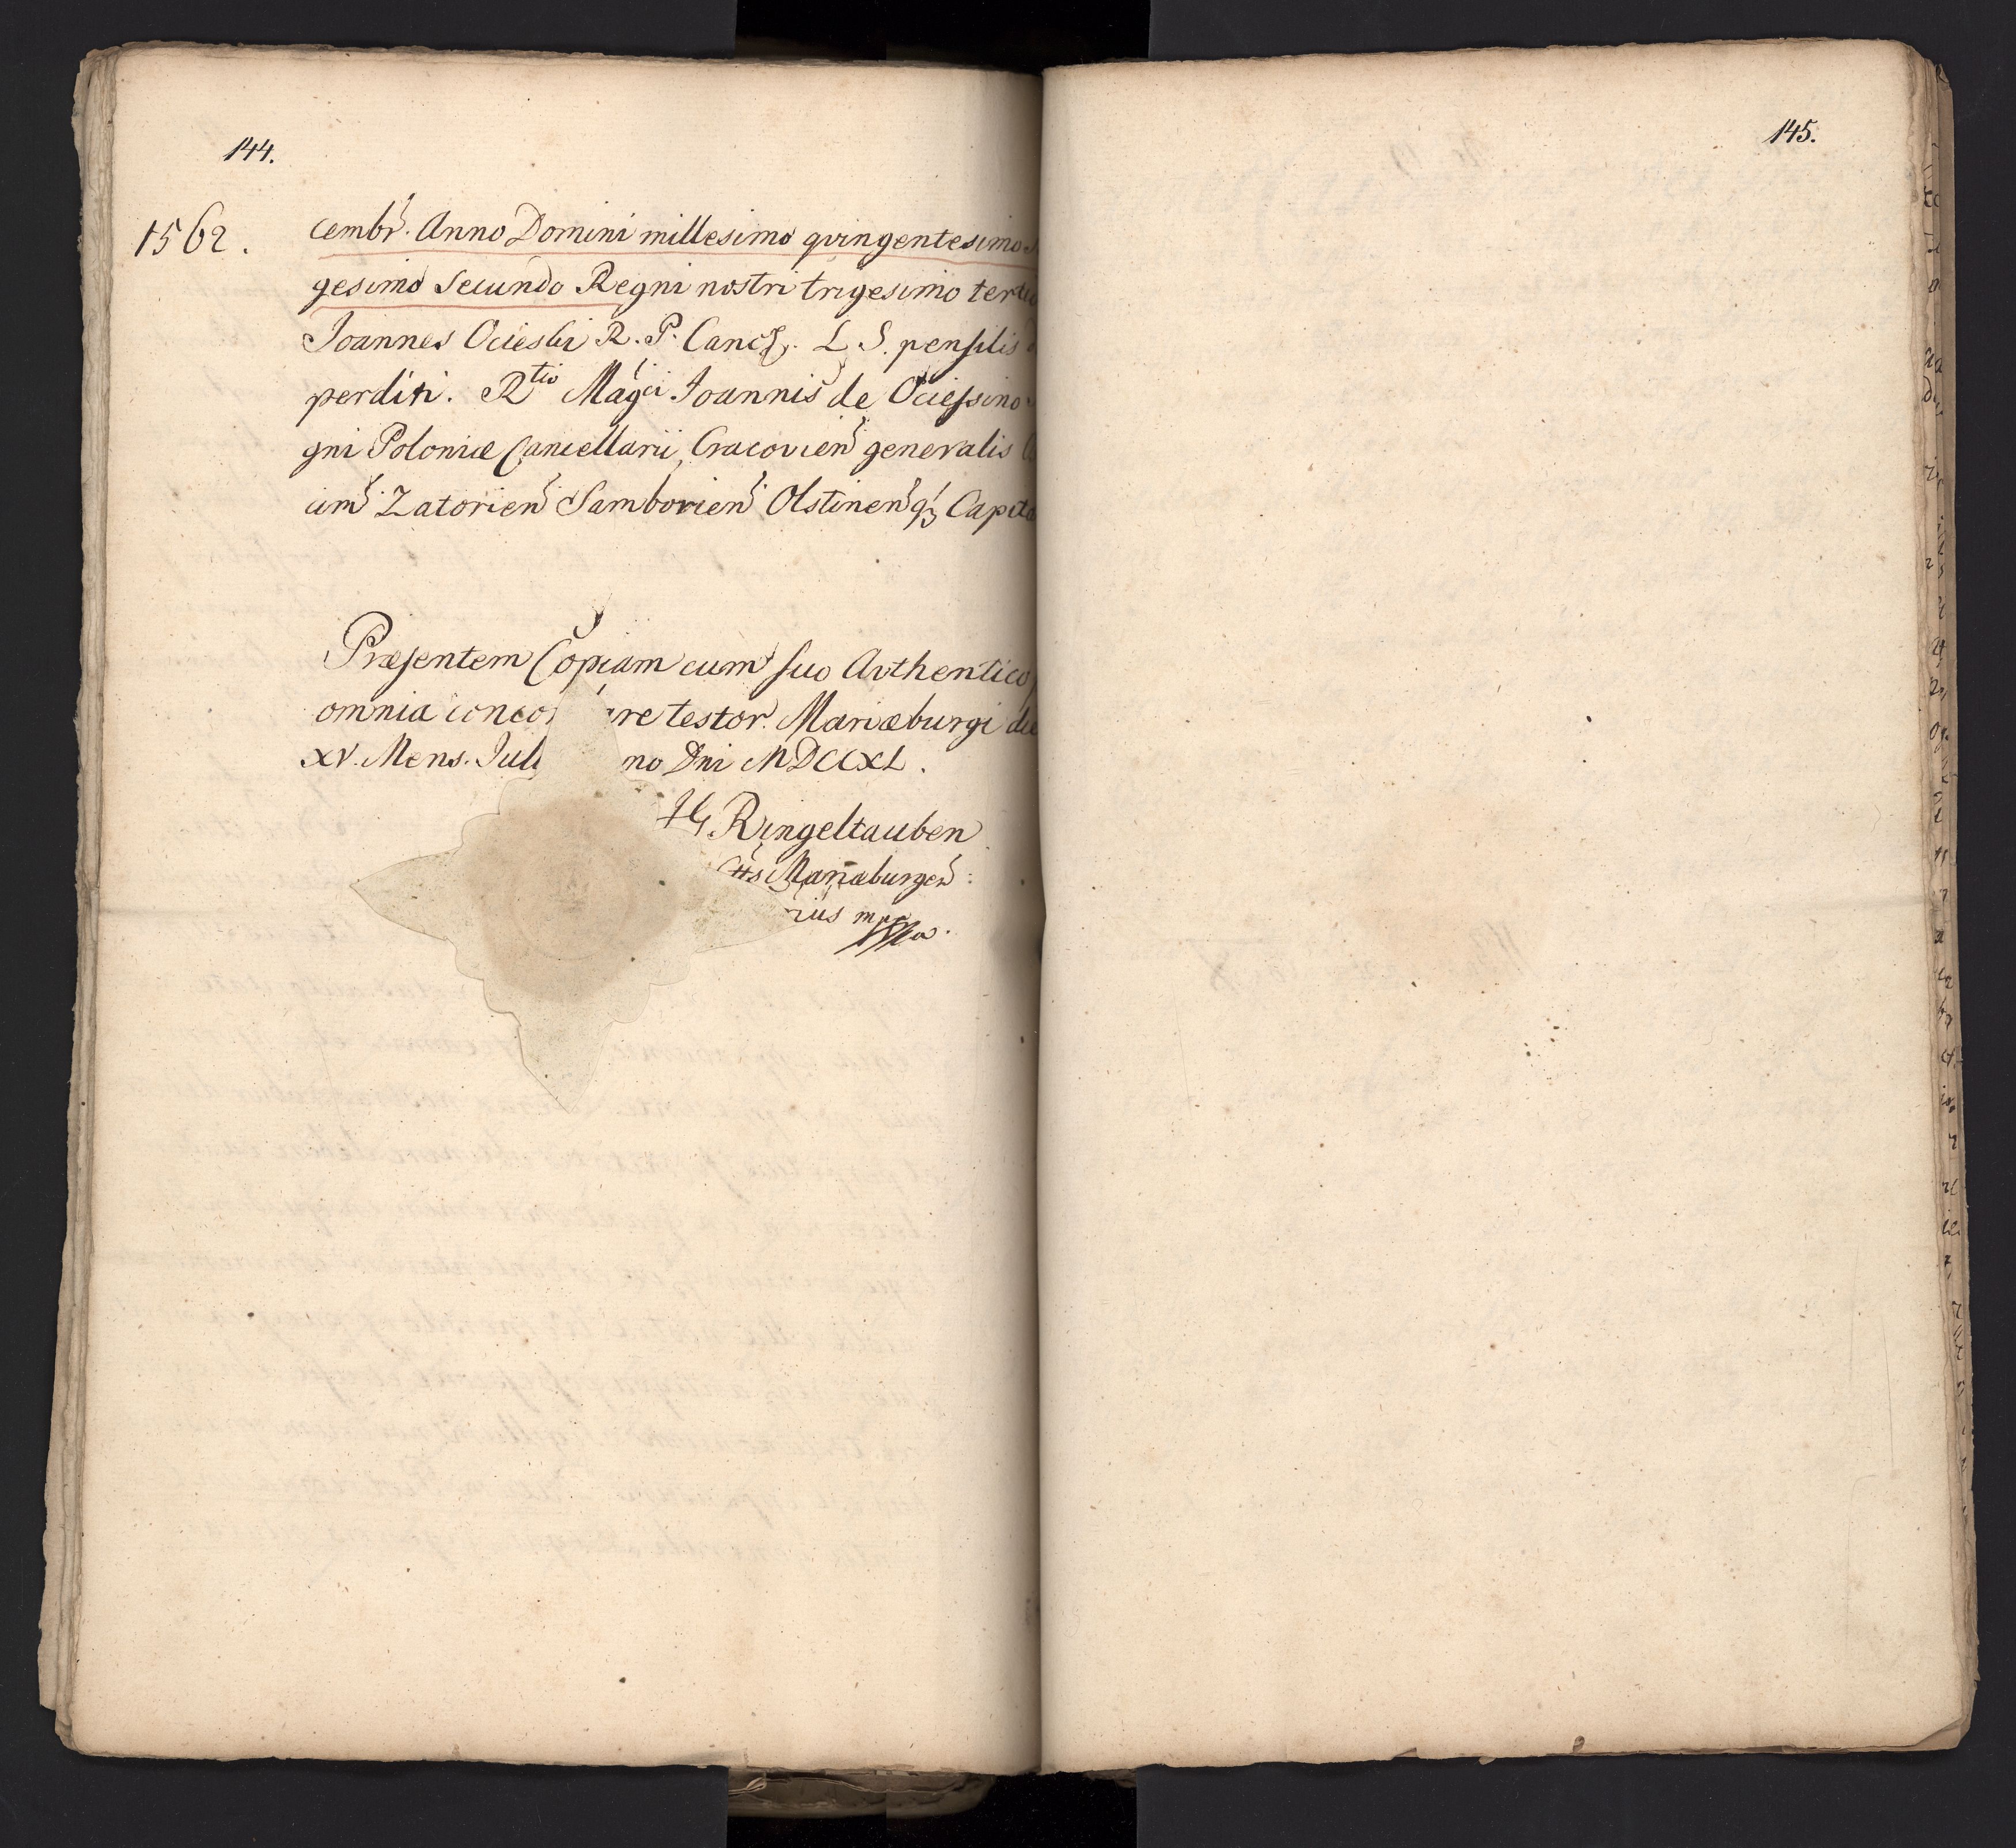 144.
1562. cembr. Anno Domini millesimo quingentesimo
gesimo Secundo Regni nostri trigesimo tertio
Joannes Ocieski R. P. Canc. L. S. pensilis
perditi. Rtio Magci Joannis de Ociessino
gni Poloniæ Cancellarii, Cracovien generalis
cim Zatorien Samborien Olstinenq3 Capita
Præsentem Copiam cum suo Authentico
omnia conco re testor. Mariæburgi die
XV. Mens. Juli no Dni MDCCXL.
Ringeltauben
Mariæburgen:
rius mppa.
145.